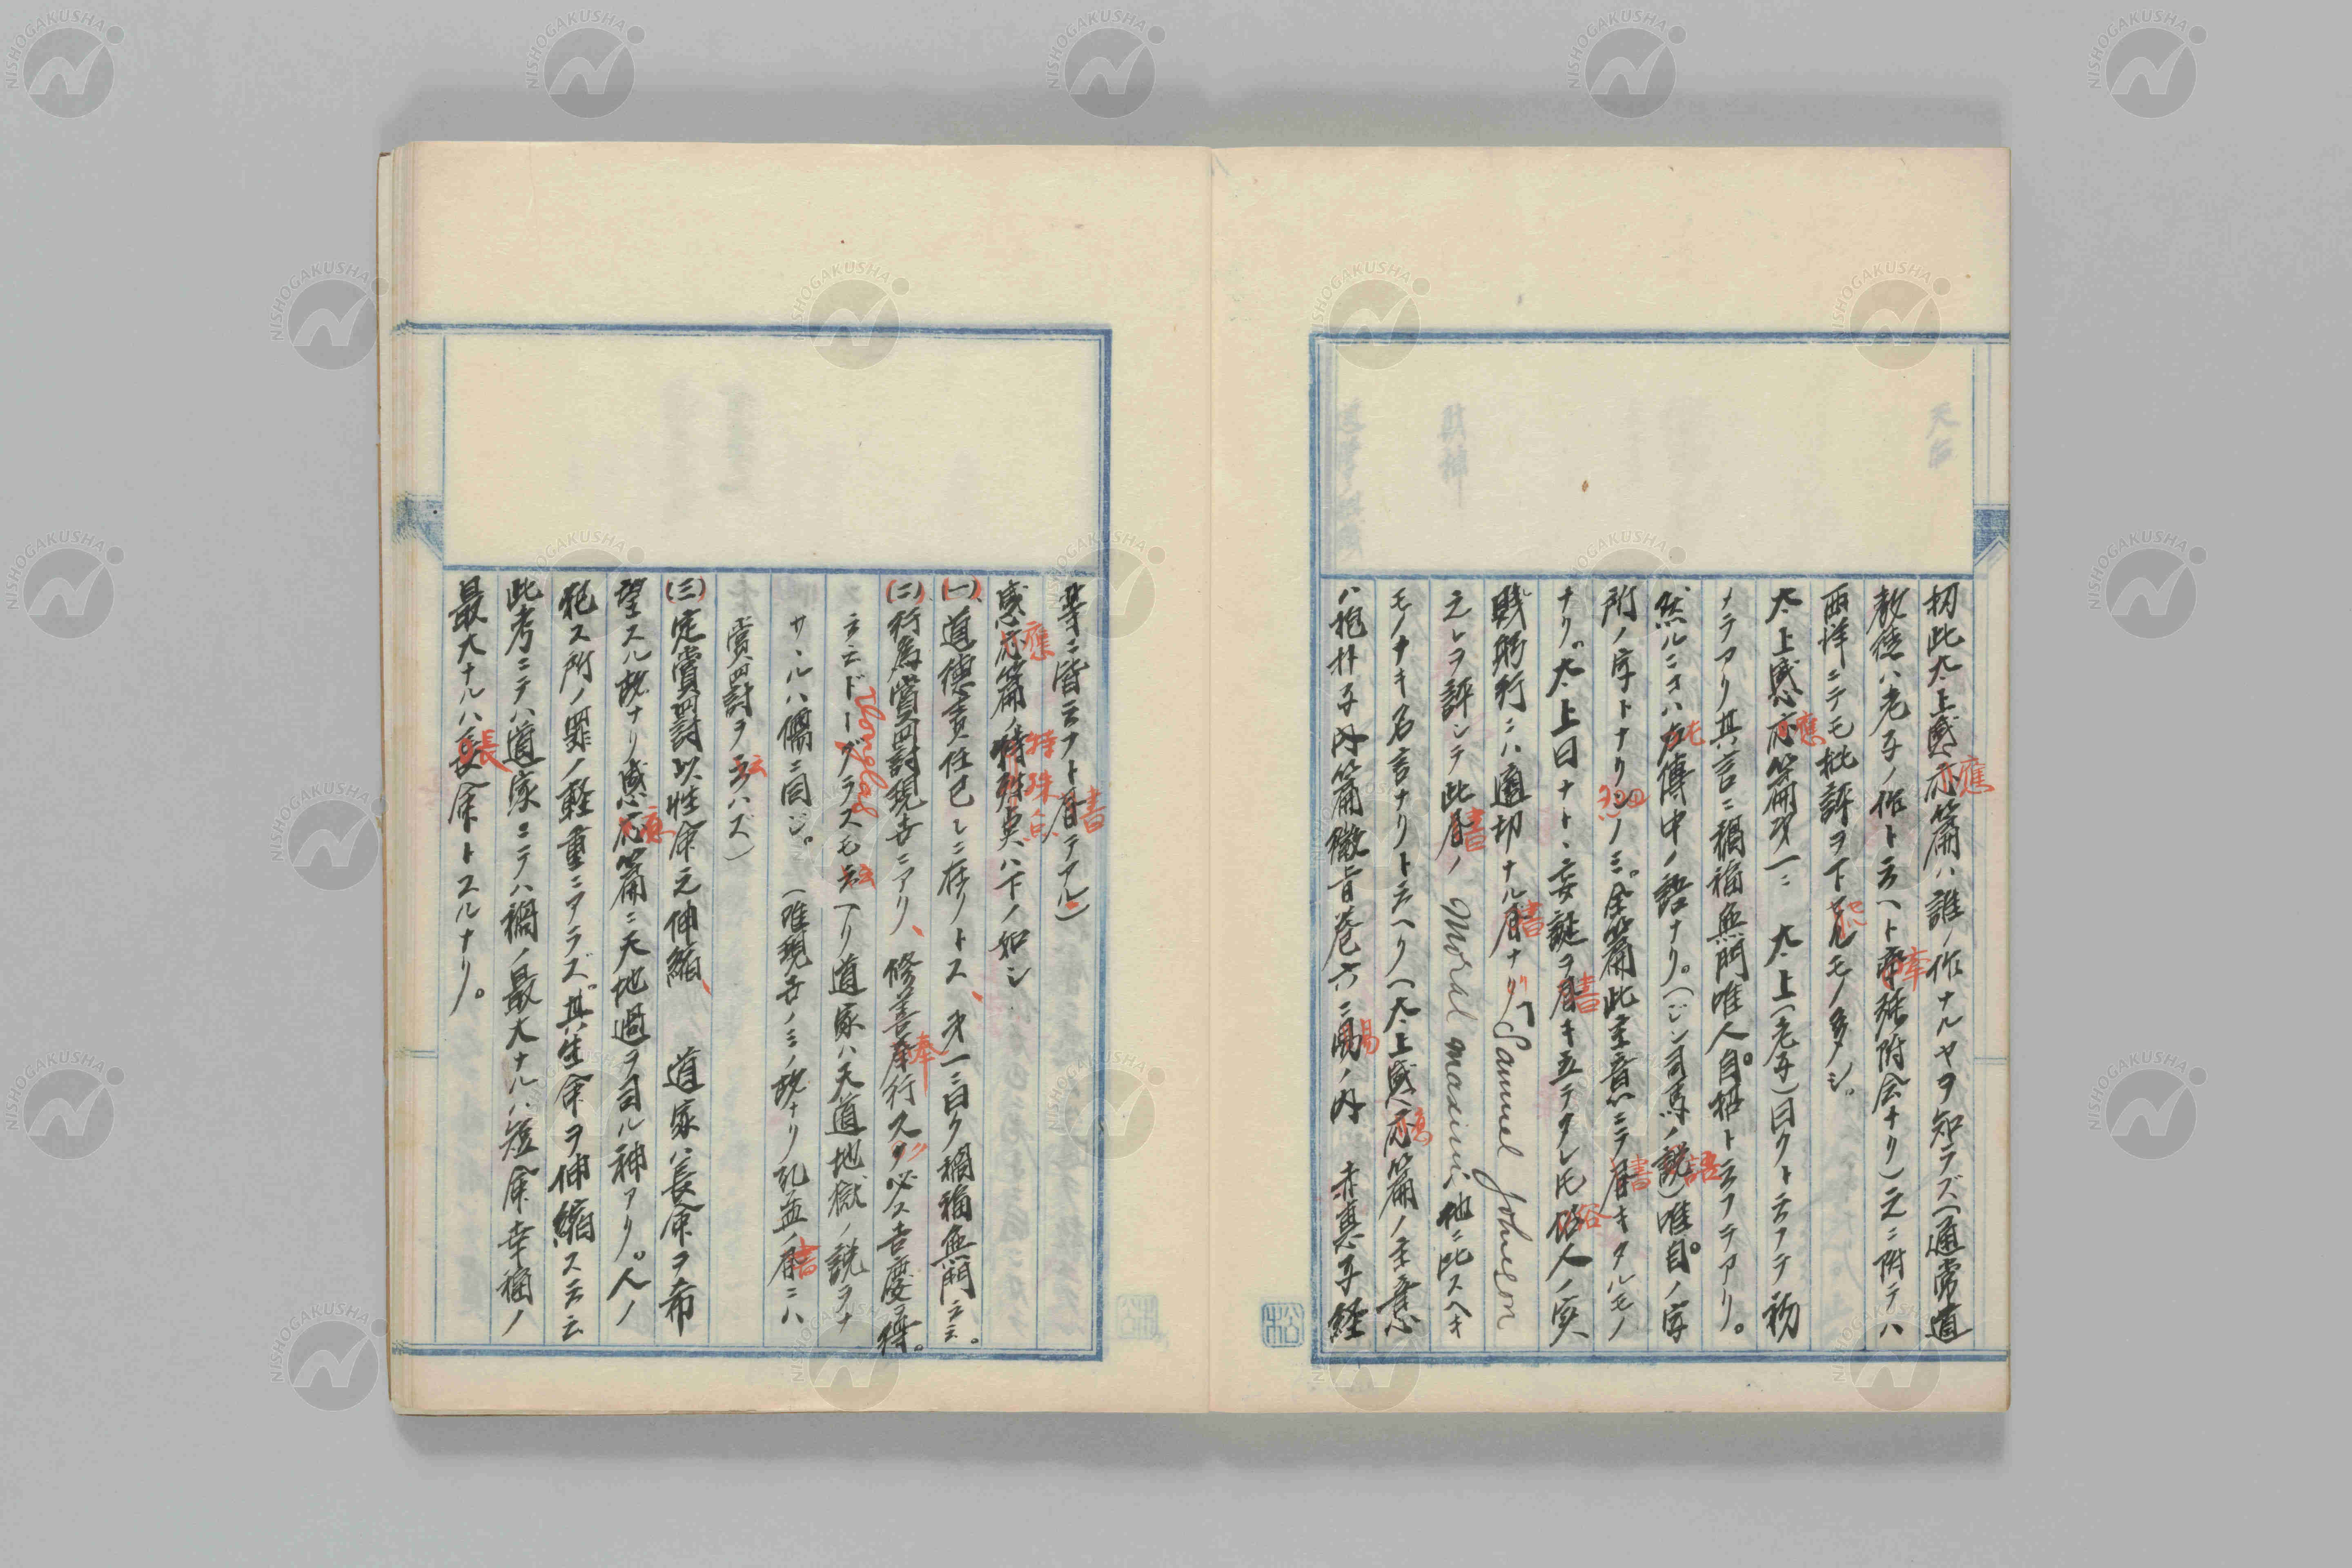 初此太上感応篇ハ誰ノ作ナルヤヲ知ラズ(通常道
應
教徒ハ老子ノ作ト云ヘト牽強附会ナリ)之ニ附テハ
牽
西洋ニテモ批評ヲ下セルモノ多シ。
太上感応篇第一ニ 太上(老子)曰クト云フテ初
應
メテアリ其言ニ禍福無門唯人自招ト云フテアリ。
然ルニコハ左傳中ノ語ナリ。(ビン司馬ノ説)唯自ノ字
語
附ノ字トナリシノミ。全篇此主意ニテ書キタルモノ
書
ナリ。太上曰ナト、妄誕ヲ書キ立テタレ𪜈俗人ノ実
書
俗
践躬行ニハ適切ナル書ナリ「Samuel Johnson
書
之レヲ評シテ此書ノ Moral maximハ他ニ比スヘキ
書
モノナキ名言ナリト云ヘリ(太上感応篇ノ主意
ハ抱朴子内篇微旨巻六ニ賜ノ内 赤恵子経
等ニ皆云フト書テアル)
書
感応篇ノ特殊点ハ下ノ如シ
應
特殊点
(一)道德責任己レニ在リトス、第一ニ曰ク禍福無門云云。
(二)行為賞罰現世ニアリ、修善奉行スレ必ス吉慶ヲ得。
奉
云云ドーグラスモ云ヘリ道家ハ天道地獄ノ説ヲナ
Douglas
サヽルハ儒ニ同ジ。 (唯現世ノミノ故ナリ孔孟ノ書ニハ
書
賞罰ヲ云ハズ)
云
(三)定賞罰以性命之伸縮、 道家ハ長命ヲ希
望スル故ナリ感応篇ニ天地過ヲ司ル神アリ。人ノ
應
犯ス所ノ罪ノ軽重ニアラズ其生命ヲ伸縮ス云云
此考ニテハ道家ニテハ禍ノ最大ナルハ短命幸福ノ
最大ナルハ長命トスルナリ。
長